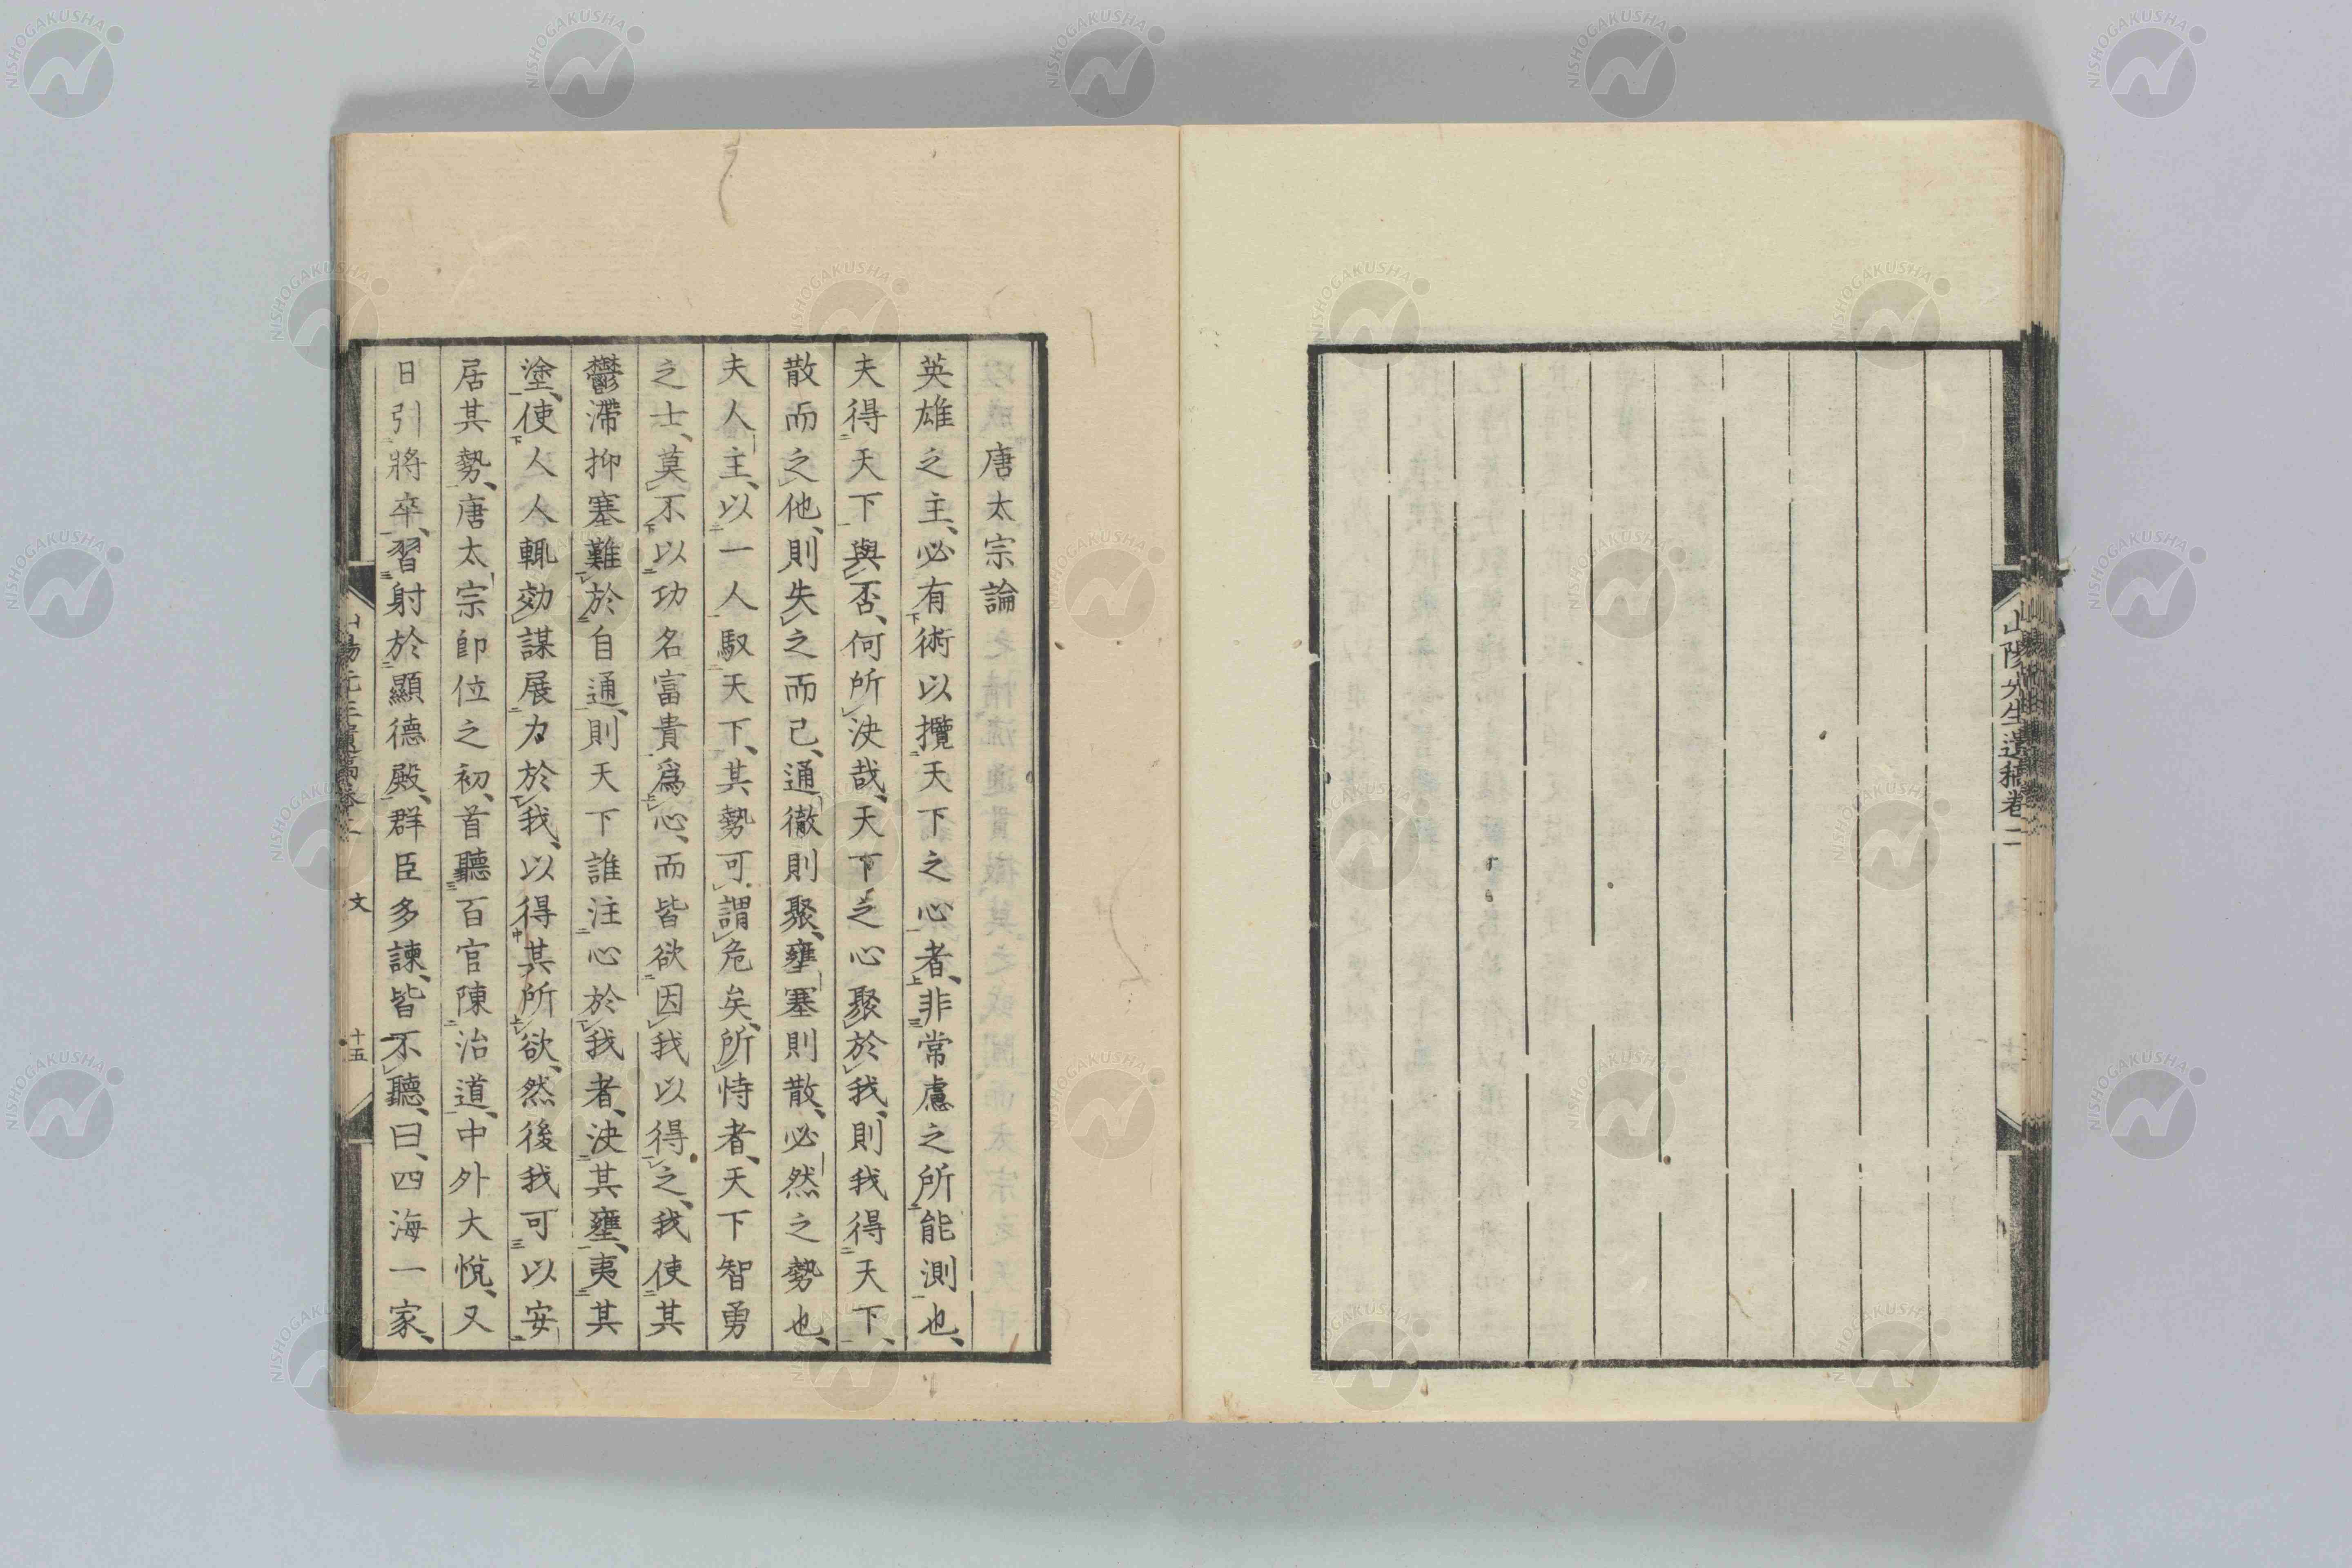 山陽先生遺稿卷二
唐太宗論
英雄之主、必有術以攬天下之心者、非常慮之所能測也、
夫得天下與否、何所決哉、天下之心聚於我、則我得天下、
散而之他、則失之而已、通徹則聚、壅塞則散、必然之勢也、
夫人主、以一人馭天下、其勢可謂危矣、所恃者、天下智勇
之士、莫不以功名富貴爲心、而皆欲因我以得之、我使其
鬱滯抑塞難於自通、則天下誰注心於我者、決其壅、夷其
塗、使人人輒効謀展力於我、以得其所欲、然後我可以安
居其勢、唐太宗卽位之初、首聽百官陳治道、中外大悅、又
日引將卒、習射於顯德殿、群臣多諫、皆不聽、曰、四海一家、
文
十五
NISHOGAKUSHA